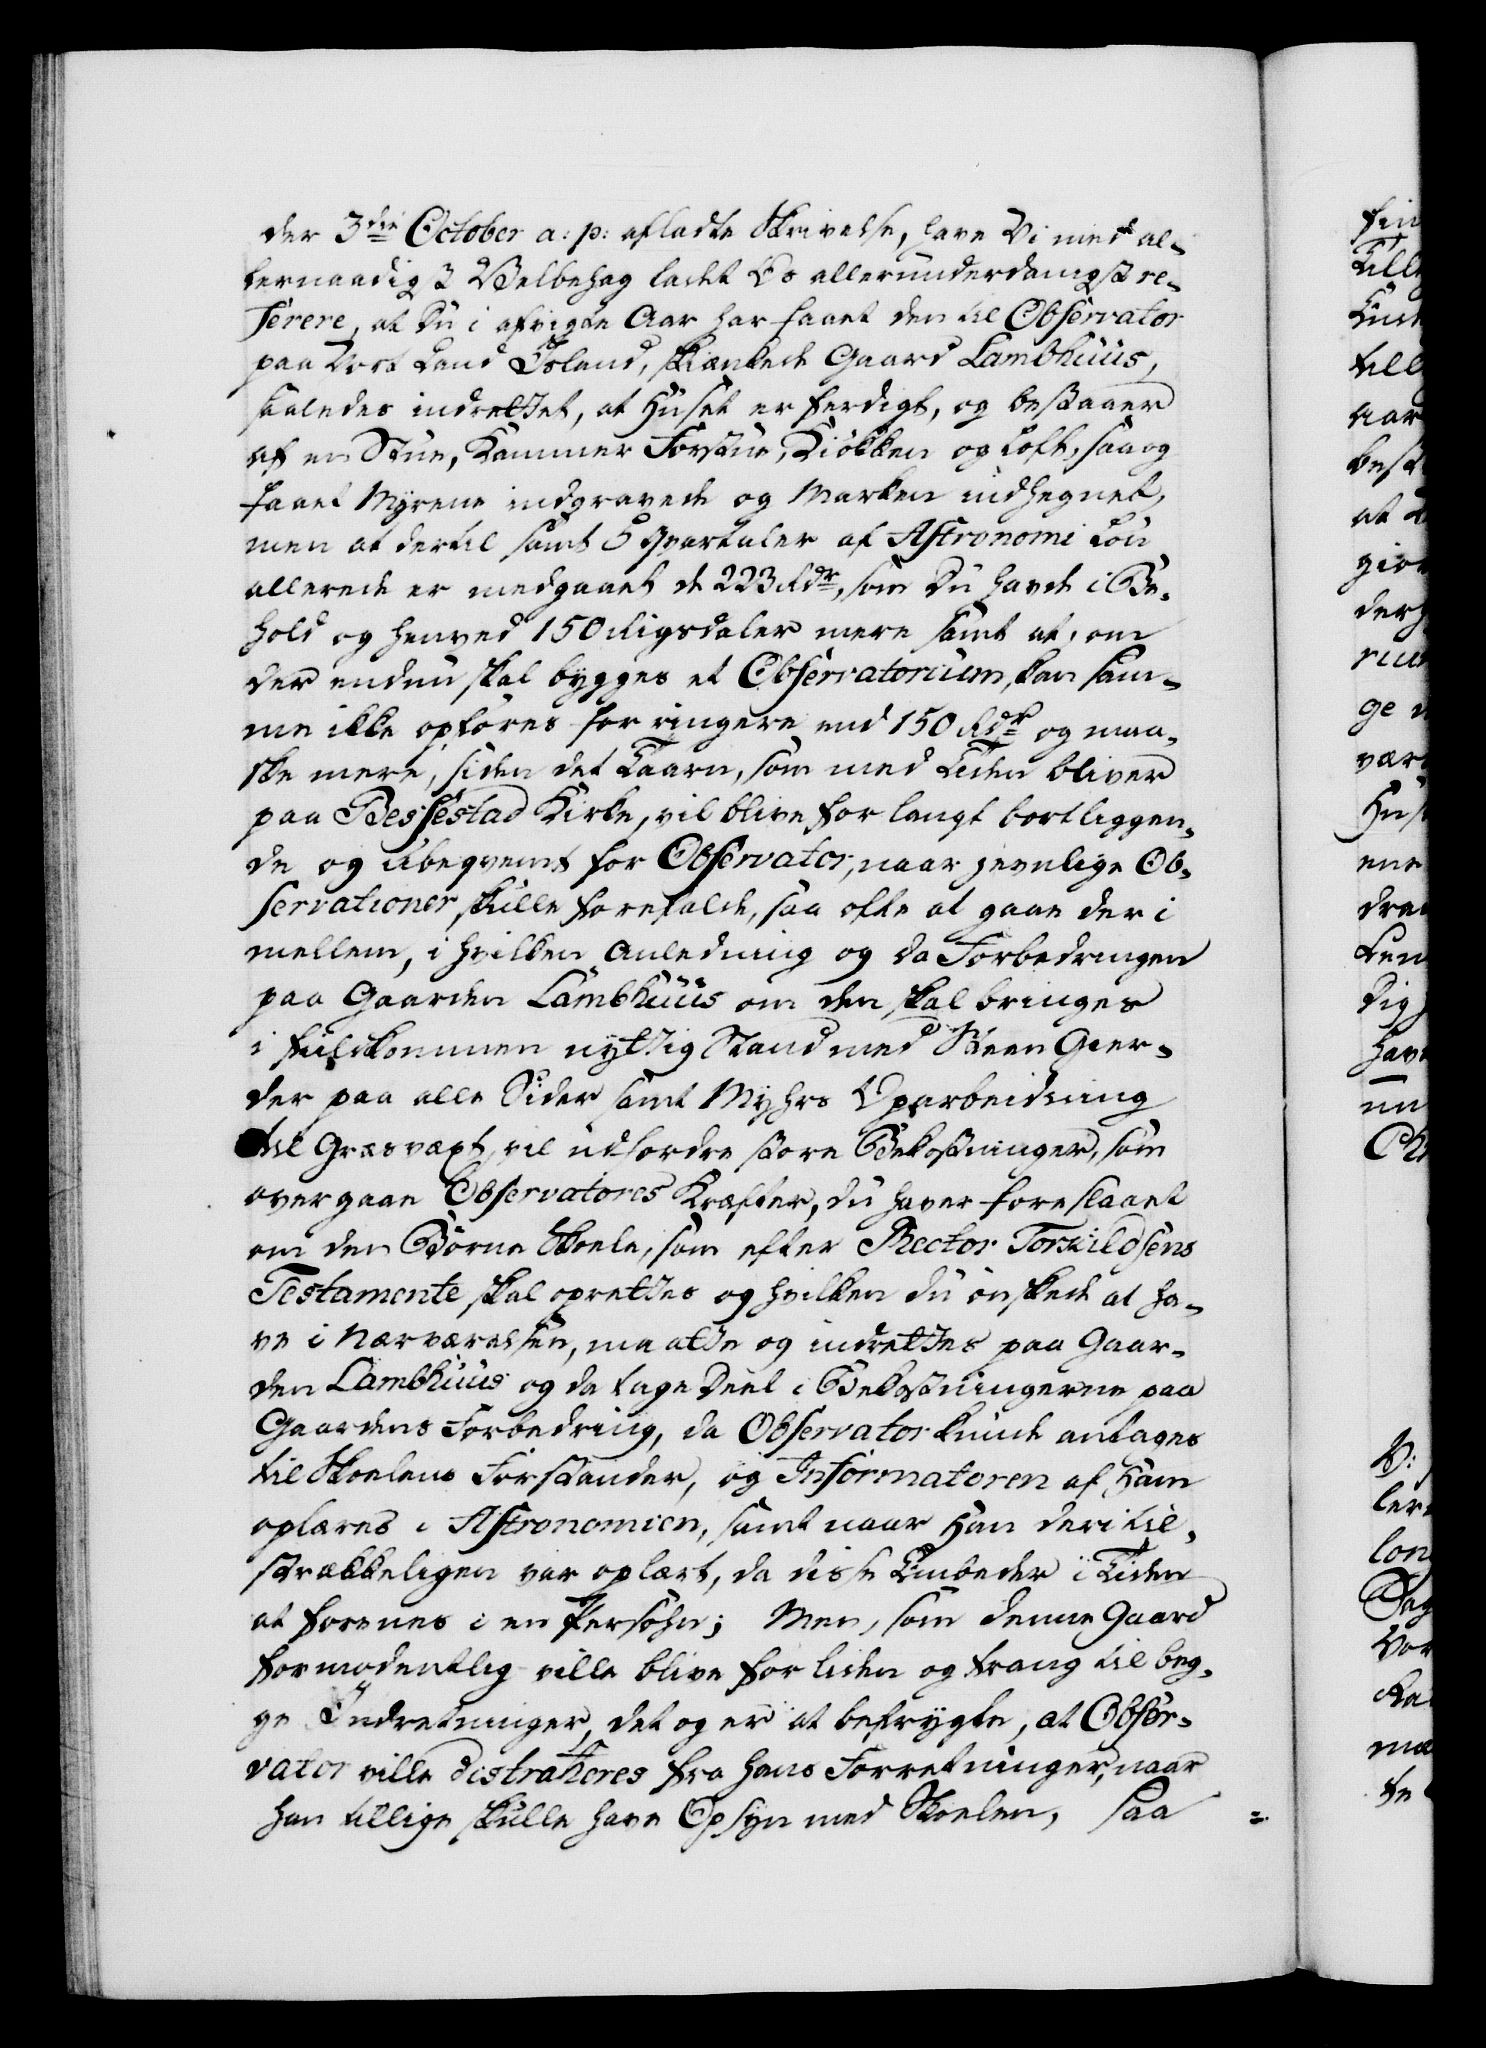 der 3die October a: p: afladte Skrivelse, have Vi med al-
lernaadigst Velbehag ladet Os allerunderdanigst re-
ferere, at Du i afvigte Aar har faaet den til Observator
paa Vort Land Island, skiænkede Gaard Lambhuus,
saaledes indrettet, at Huset er ferdigt, og bestaaer
af en Stue, Kammer Forstue, Kiøkken og Loft, saa og
faaet Myrene indgravede og Marken indhegnet,
men at dertil samt 5 Qvartaler af Astronomi Løn
allerede er medgaaet de 223 Rdr, som Du havde i Be-
hold og henved 150 Rigsdaler mere samt at, om
der endnu skal bygges et Observatorium, kan sam-
me ikke opføres for ringere end 150 Rdr og maa-
ske mere, siden det Taarn, som med Tiden bliver
paa Bessestad Kirke, vil blive for langt bortliggen-
de og ubeqvemt for Observator, naar jevnlige Ob-
servationer skulle forefalde, saa ofte at gaae der i
mellem, i hvilken Anledning og da Forbedringen
paa Gaarden Lambhuus om den skal bringes
i fuldkommen nyttig Stand med Steen Gier-
der paa alle Sider samt Myhrs Oparbeidning
til Græsvæxt, vil udfordre store Bekostninger, som
overgaae Observatores Kræfter, du haver foreslaaet
om den Børne Skole, som efter Rector Torkildsens
Testamente skal oprettes og hvilken du ønskede at ha-
ve i Nærværelsen, maatte og indrettes paa Gaar-
den Lambhuus og da tage Deel i Bekostningerne paa
Gaardens Forbedring, da Observator kunde antages
til Skolens Forstander, og Informatoren af Ham
oplæres i Astronomien, samt naar Han deri til-
strækkeligen var oplært, da disse Embeder i Tiden
at forenes i en Persohn; Men, som denne Gaard
formodentlig ville blive for liden og trang til beg-
ge Indretninger, det og er at befrygte, at Obser-
vator ville distraheres fra hans Forretninger, naar
han tillige skulle have Opsyn med Skolen, saa =